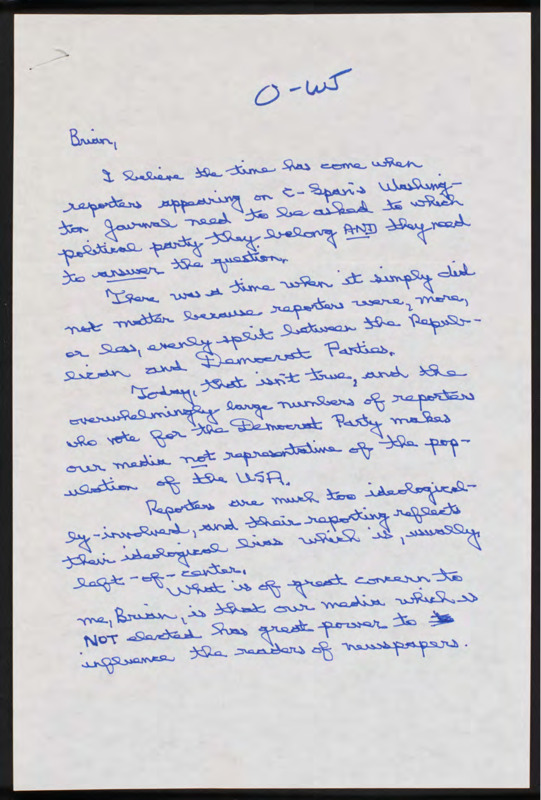 O-WJ
Brian,
I believe the time has come when
reporters appearing on C-Span's Washing-
ton Journal need to be asked to which
political party they belong AND they need
to answer the question.
There was a time when it simply did
not matter because reporters were, more,
or less, evenly split between the Repub-
lican and Democrat Parties.
Today, that isn't true, and the
overwhelmingly large numbers of reporters
who vote for the Democrat Party makes
our media not representative of the pop-
ulation of the USA.
Reporters are much too ideological-
ly-involved, and their reporting reflects
their ideological bias which is, usually,
left-of-center.
What is of great concern to
me, Brian, is that our media which is
NOT elected has great power to
influence the readers of newspapers.